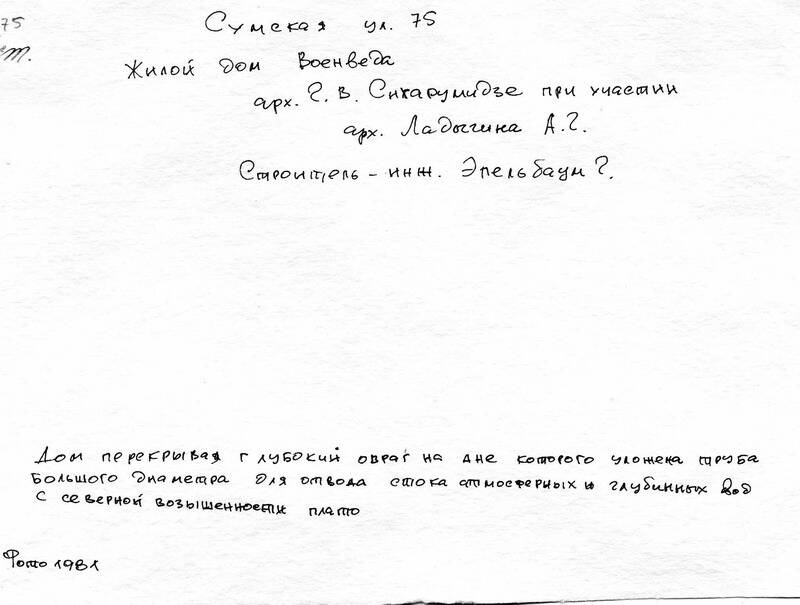 75
Сумская ул. 75
Жилой дом Военведа
арх. Г. В. Сихарулидзе при участии
арх. Ладыгина А.Г.
Строитель – инж. Эпельбаум Г.
Дом перекрывая глубокий овраг на дне которого уложена труба
большого диаметра для отвода стока атмосферных и глубинных вод
с северной возышенности плато
Фото 1981